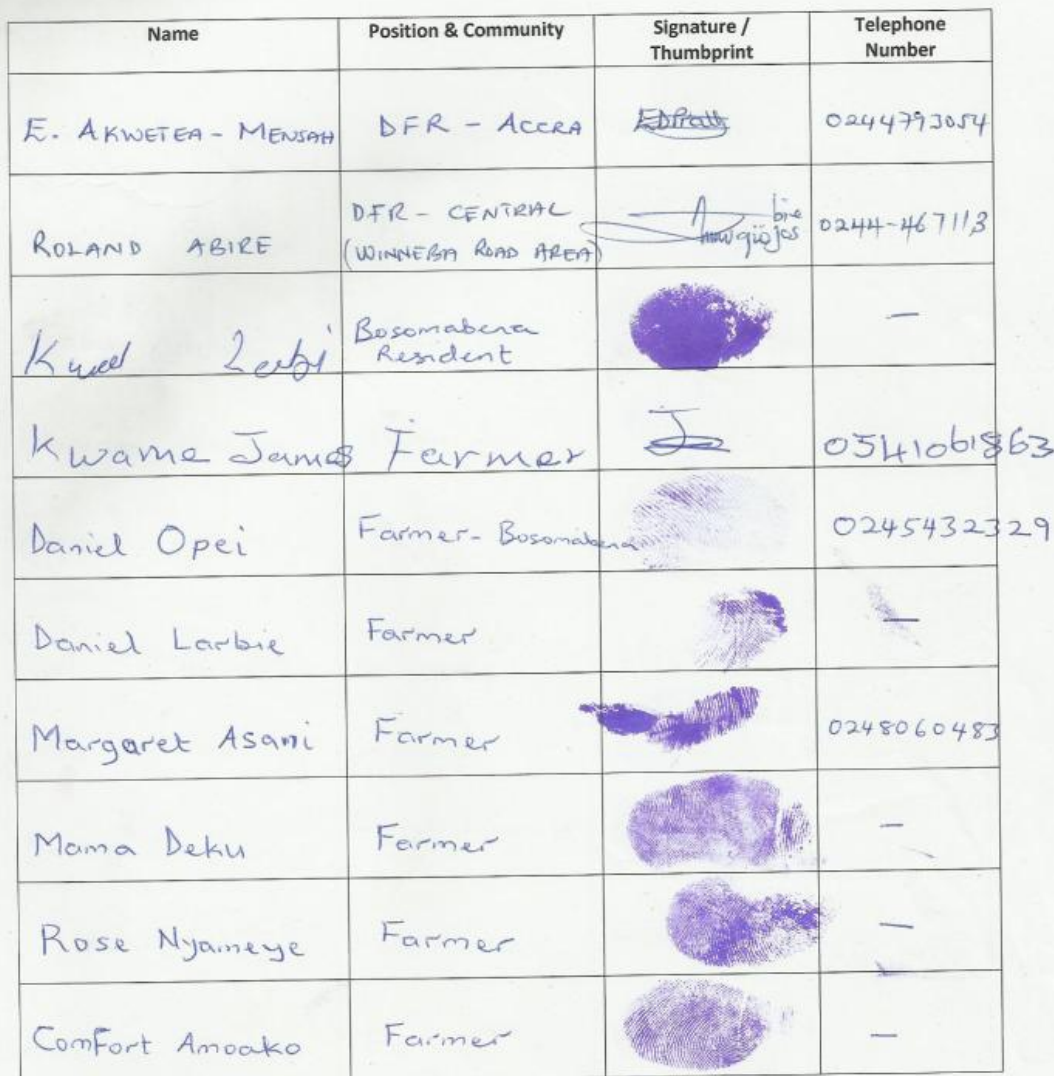 Name Position & Community Signature / Thumbprint Telephone Number
E. AKWETEA-MENSAH DFR - ACCRA 0244793054
ROLAND ABIRE DFR - CENTRAL (WINNEBA ROAD AREA) 0244-467113
Bosomabena Resident —
Kwame James Farmer J 0541061863
Daniel Opei Farmer - Bosomabena 0245432329
Daniel Larbie Farmer —
Margaret Asani Farmer 0248060483
Mama Deku Farmer —
Rose Nyameye Farmer —
Comfort Amoako Farmer —